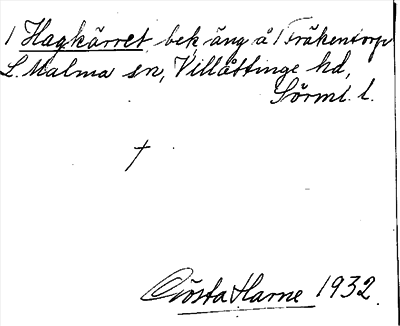 1 Hagkärret, bek. äng å 1 Fräkentorp
L. Malma sn, Villåttinge hd,
Sörml. l.
†
Gösta Harne 1932.